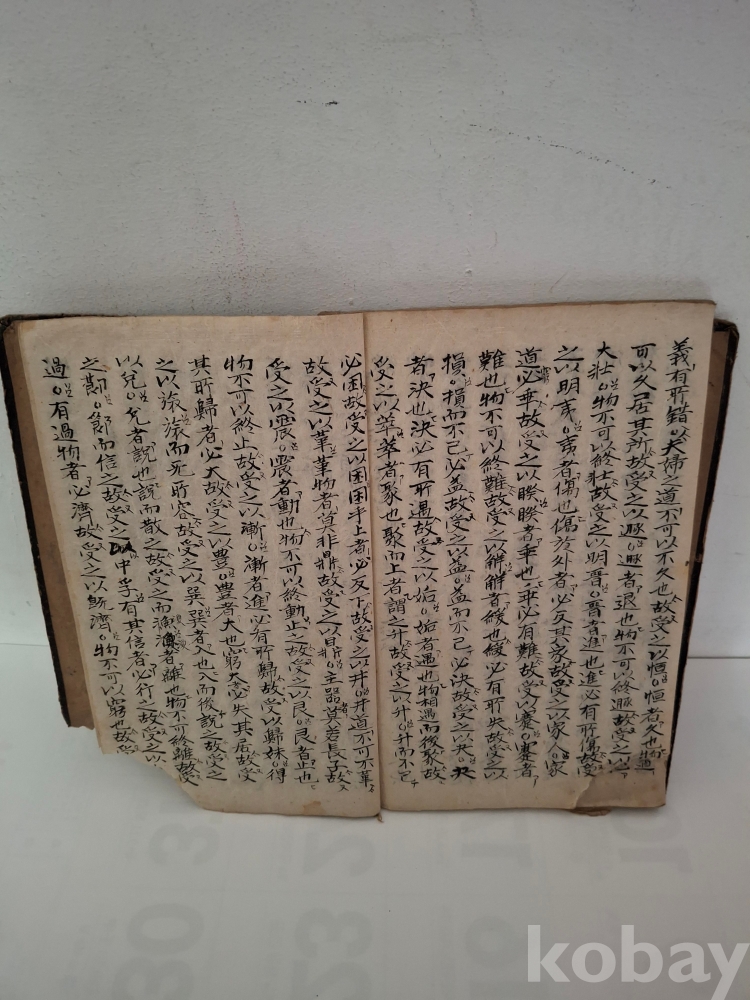 義有所錯夫婦之道不可以不久也故受之以恒恒者久也物
可以久居其所故受之以遯遯者退也物不可以終遯故受之以
大壯物不可以終壯故受之以明晋晋者進也進必有所傷故受
之以明夷夷者傷也傷於外者必反其家故受之以家人家
道必乖故受之以睽睽者乖也乖必有難故受之以蹇蹇者
難也物不可以終難故受之以解解者緩也緩必有所失故受之以
損損而不已必益故受之以益益而不已必決故受之以夬夬
者決也決必有所遇故受之以姤姤者遇也物相遇而後聚故
受之以萃萃者聚也聚而上者謂之升故受之以升升而不已
必困故受之以困困乎上者必反下故受之以井井道不可不革
故受之以革革物者莫非鼎故受之以鼎主器莫若長子故
受之以震震者動也物不可以終動止之故受之以艮艮者止也
物不可以終止故受之以漸漸者進必有所歸故受以歸妹得
其所歸者必大故受之以豊豊者大也窮大必失其居故受
之以旅旅而无所容故受之以巽巽者入也入而後說之故受之
以兌兌者說也說而散之故受之而渙渙者離也物不可終離故受
之節節而信之故受之以中孚有其信者必行之故受之以
過有過物者必濟故受之以旣濟物不可以窮也故受
kobay